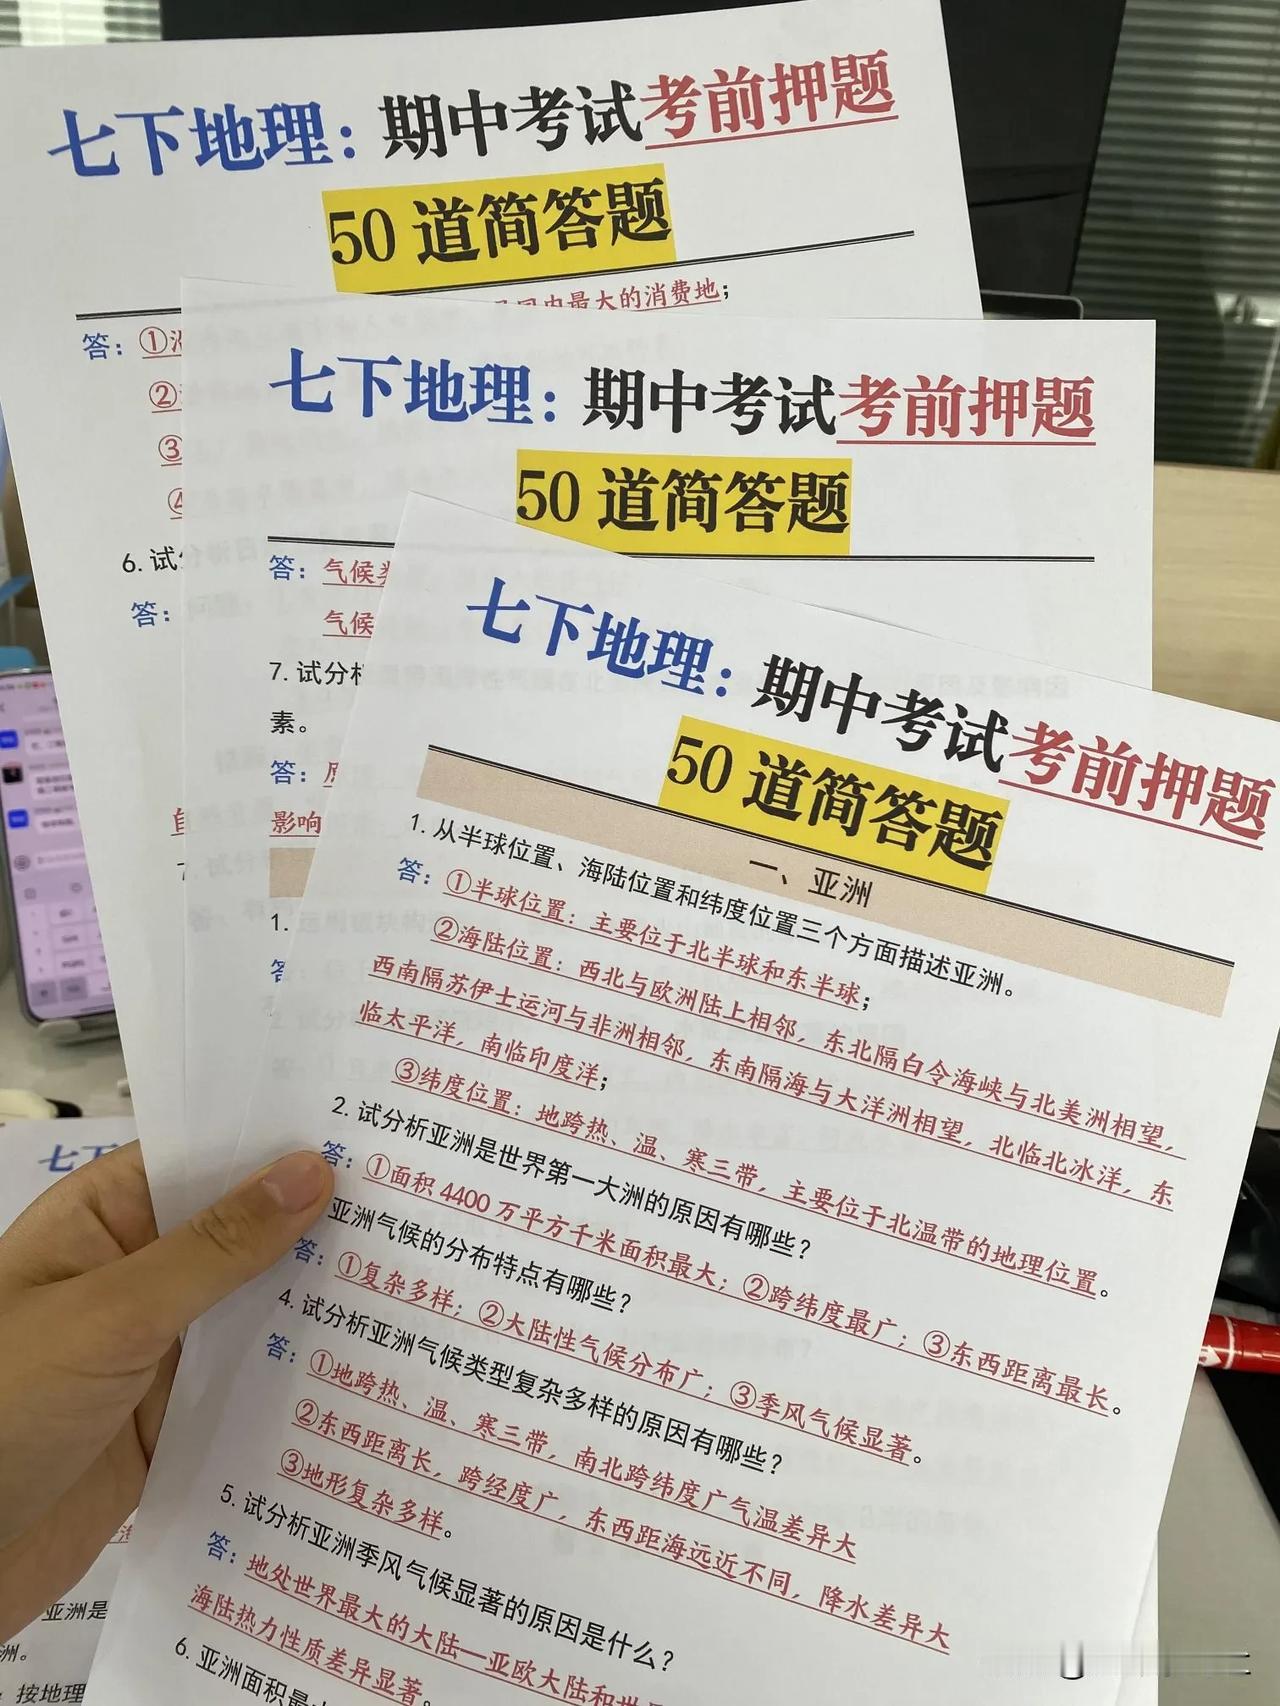 七下地理：期中考试考前押题
50 道简答题
最大的消费地；
答：①
②
③
④
6. 试分
答：
七下地理：期中考试考前押题
50 道简答题
答：气候类
气候
7. 试分析
素。
答：
影响
1.
答
七下地理：期中考试考前押题
50 道简答题
一、亚洲
1. 从半球位置、海陆位置和纬度位置三个方面描述亚洲。
答：①半球位置：主要位于北半球和东半球；
②海陆位置：西北与欧洲陆上相邻，东北隔白令海峡与北美洲相望，
西南隔苏伊士运河与非洲相邻，东南隔海与大洋洲相望，北临北冰洋，东
临太平洋，南临印度洋；
③纬度位置：地跨热、温、寒三带，主要位于北温带的地理位置。
2. 试分析亚洲是世界第一大洲的原因有哪些？
答：①面积 4400 万平方千米面积最大；②跨纬度最广；③东西距离最长。
亚洲气候的分布特点有哪些？
答：①复杂多样；②大陆性气候分布广；③季风气候显著。
4. 试分析亚洲气候类型复杂多样的原因有哪些？
答：①地跨热、温、寒三带，南北跨纬度广气温差异大
②东西距离长，跨经度广，东西距海远近不同，降水差异大
③地形复杂多样。
5. 试分析亚洲季风气候显著的原因是什么？
答：地处世界最大的大陆—亚欧大陆和世
海陆热力性质差异显著。
6. 亚洲面积最大
七下
亚洲是
洲。
按地理